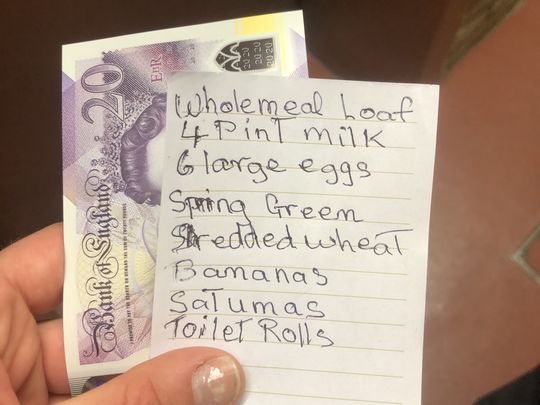 20
Bank of England
EIIR
20 20
20 20
20 20
Wholemeal Loaf
4 Pint milk
6 large eggs
Spring Green
Shredded wheat
Bananas
Satumas
Toilet Rolls